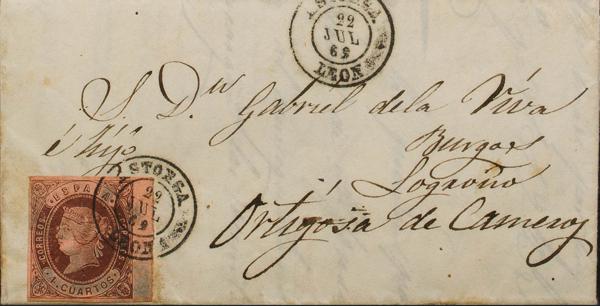 ASTORGA
22
JUL
62
LEON
S. Dn Gabriel de la Viva
é Hijo
Burgos
Logroño
Ortigosa de Cameros
ASTORGA
22
JUL
62
LEON
ESPAÑA
CORREOS
4 CUARTOS